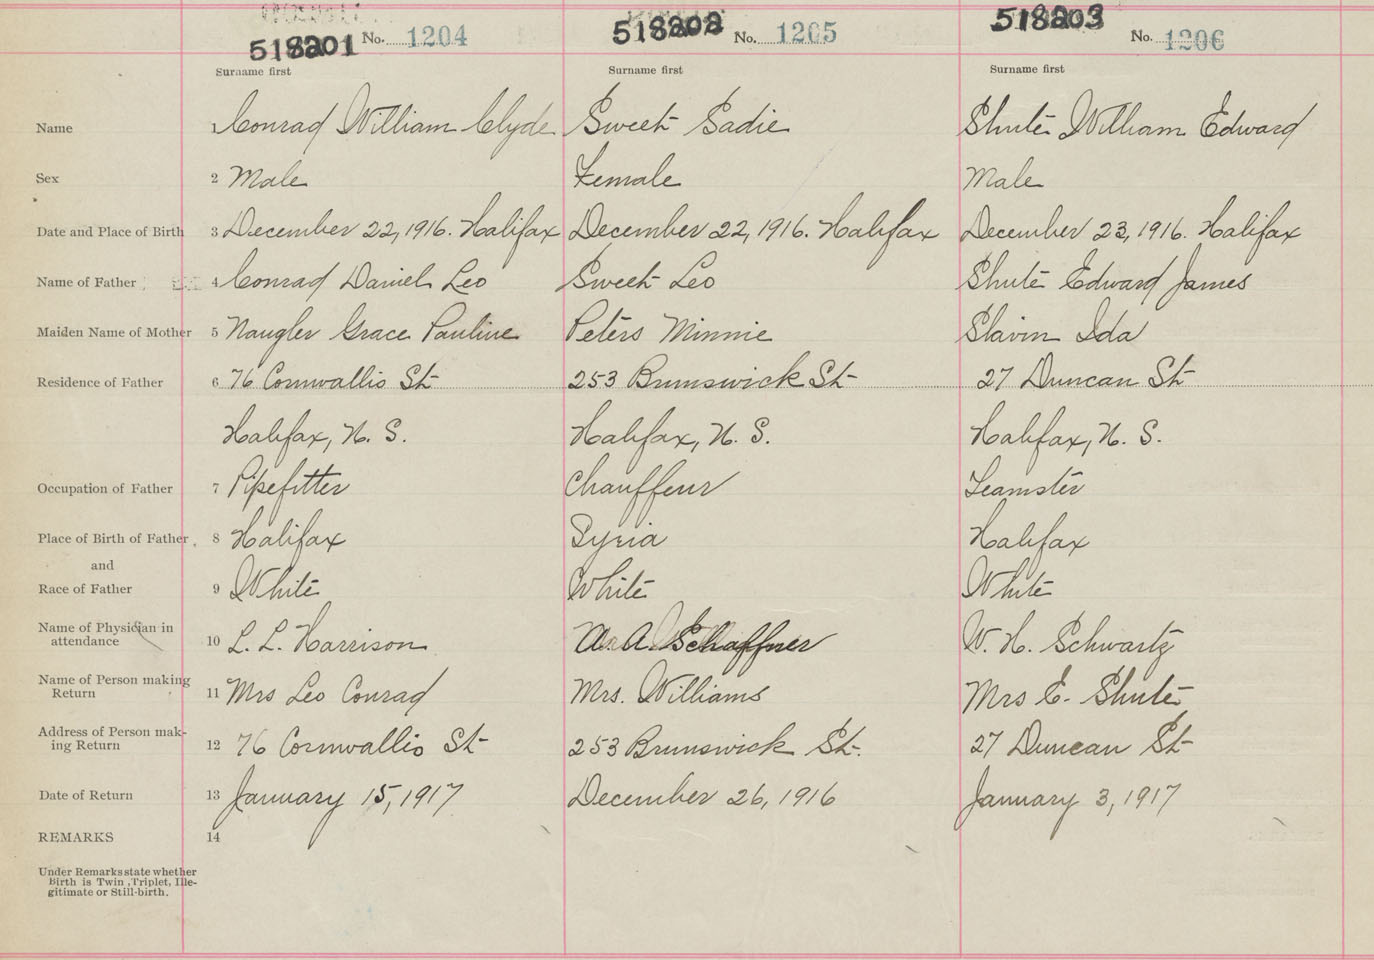 518201 No. 1204 518202 No. 1205 518203 No. 1206
Surname first Surname first Surname first
Name 1 Conrad William Clyde Sweet Sadie Shute William Edward
Sex 2 Male Female Male
Date and Place of Birth 3 December 22, 1916. Halifax December 22, 1916. Halifax December 23, 1916. Halifax
Name of Father 4 Conrad Daniel Leo Sweet Leo Shute Edward James
Maiden Name of Mother 5 Naugler Grace Pauline Peters Minnie Slavin Ida
Residence of Father 6 76 Cornwallis St 253 Brunswick St 27 Duncan St
Halifax, N. S. Halifax, N. S. Halifax, N. S.
Occupation of Father 7 Pipefitter Chauffeur Teamster
Place of Birth of Father 8 Halifax Syria Halifax
and
Race of Father 9 White White White
Name of Physician in
attendance 10 L. L. Harrison A. Schaffner W. H. Schwartz
Name of Person making
Return 11 Mrs Leo Conrad Mrs. Williams Mrs E. Shute
Address of Person mak-
ing Return 12 76 Cornwallis St 253 Brunswick St. 27 Duncan St
Date of Return 13 January 15, 1917 December 26, 1916 January 3, 1917
REMARKS 14
Under Remarks state whether
Birth is Twin, Triplet, Ille-
gitimate or Still-birth.